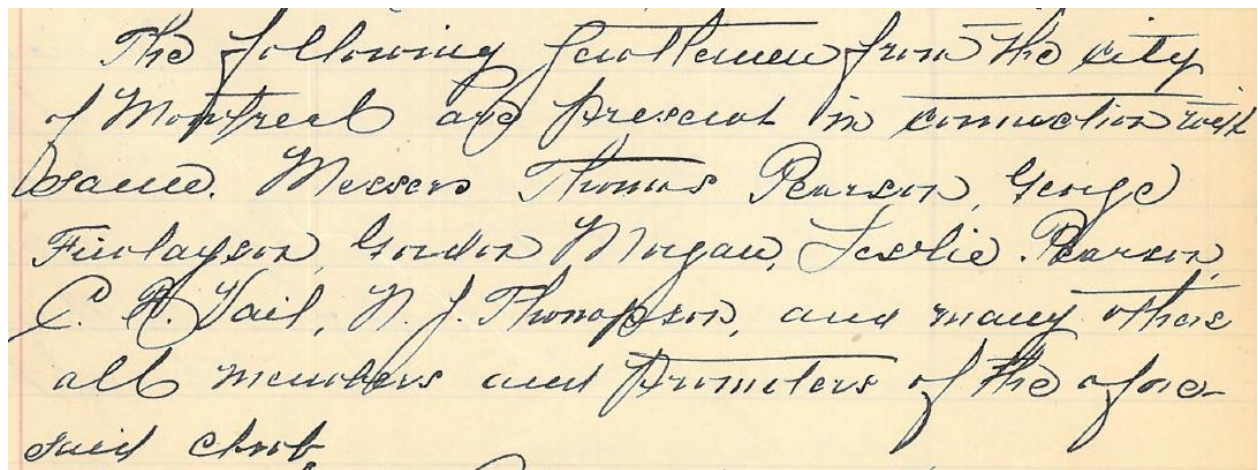 The following Gentlemen from the city
of Montreal are present in connection with
same. Messers Thomas Pearson, George
Finlayson, Gordon Morgan, Leslie. Pearson,
C. R. Vail, N. J. Thompson, and many others
all members and promoters of the afore-
said club.